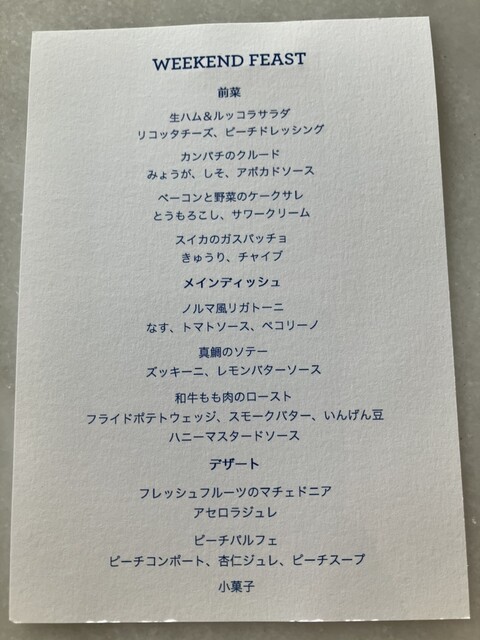 WEEKEND FEAST
前菜
生ハム＆ルッコラサラダ
リコッタチーズ、ピーチドレッシング
カンパチのクルード
みょうが、しそ、アボカドソース
ベーコンと野菜のケークサレ
とうもろこし、サワークリーム
スイカのガスパッチョ
きゅうり、チャイブ
メインディッシュ
ノルマ風リガトーニ
なす、トマトソース、ペコリーノ
真鯛のソテー
ズッキーニ、レモンバターソース
和牛もも肉のロースト
フライドポテトウェッジ、スモークバター、いんげん豆
ハニーマスタードソース
デザート
フレッシュフルーツのマチェドニア
アセロラジュレ
ピーチパルフェ
ピーチコンポート、杏仁ジュレ、ピーチスープ
小菓子